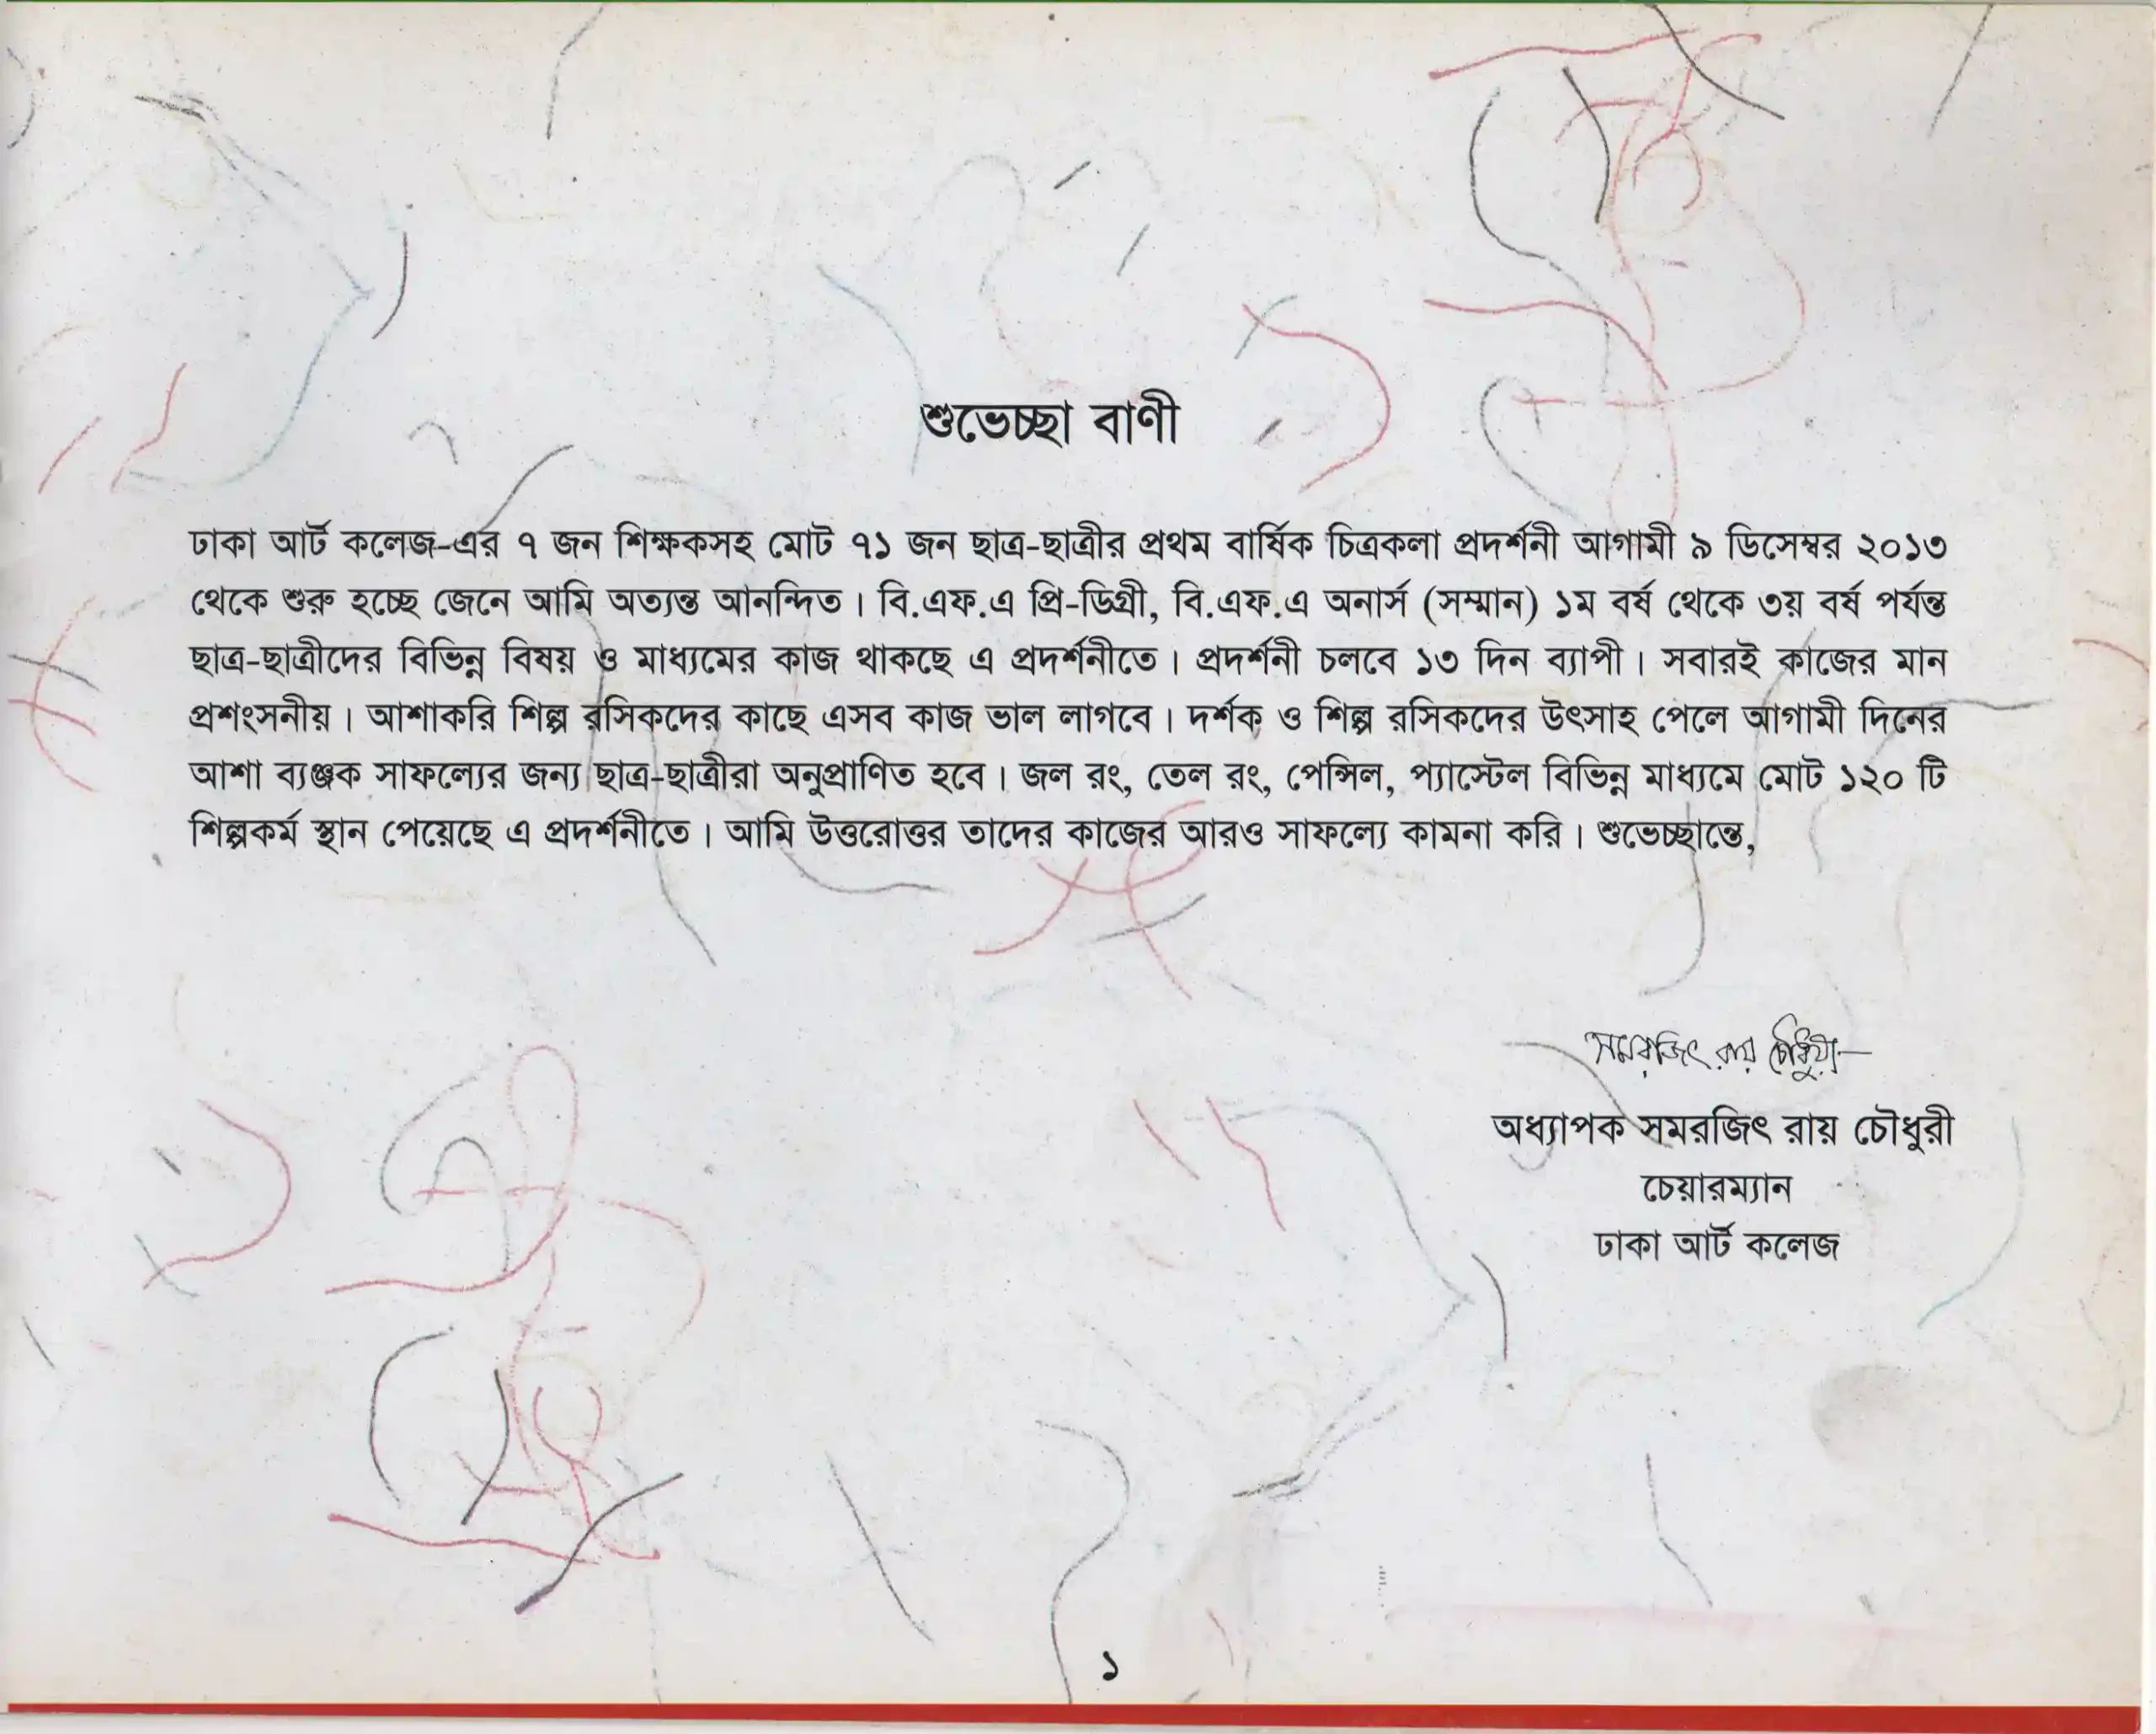 শুভেচ্ছা বাণী
ঢাকা আর্ট কলেজ-এর ৭ জন শিক্ষকসহ মোট ৭১ জন ছাত্র-ছাত্রীর প্রথম বার্ষিক চিত্রকলা প্রদর্শনী আগামী ৯ ডিসেম্বর ২০১৩
থেকে শুরু হচ্ছে জেনে আমি অত্যন্ত আনন্দিত। বি.এফ.এ প্রি-ডিগ্রী, বি.এফ.এ অনার্স (সম্মান) ১ম বর্ষ থেকে ৩য় বর্ষ পর্যন্ত
ছাত্র-ছাত্রীদের বিভিন্ন বিষয় ও মাধ্যমের কাজ থাকছে এ প্রদর্শনীতে। প্রদর্শনী চলবে ১৩ দিন ব্যাপী। সবারই কাজের মান
প্রশংসনীয়। আশাকরি শিল্প রসিকদের কাছে এসব কাজ ভাল লাগবে। দর্শক ও শিল্প রসিকদের উৎসাহ পেলে আগামী দিনের
আশা ব্যঞ্জক সাফল্যের জন্য ছাত্র-ছাত্রীরা অনুপ্রাণিত হবে। জল রং, তেল রং, পেন্সিল, প্যাস্টেল বিভিন্ন মাধ্যমে মোট ১২০ টি
শিল্পকর্ম স্থান পেয়েছে এ প্রদর্শনীতে। আমি উত্তরোত্তর তাদের কাজের আরও সাফল্যে কামনা করি। শুভেচ্ছান্তে,
সমরজিৎ রায় চৌধুরী
অধ্যাপক সমরজিৎ রায় চৌধুরী
চেয়ারম্যান
ঢাকা আর্ট কলেজ
১